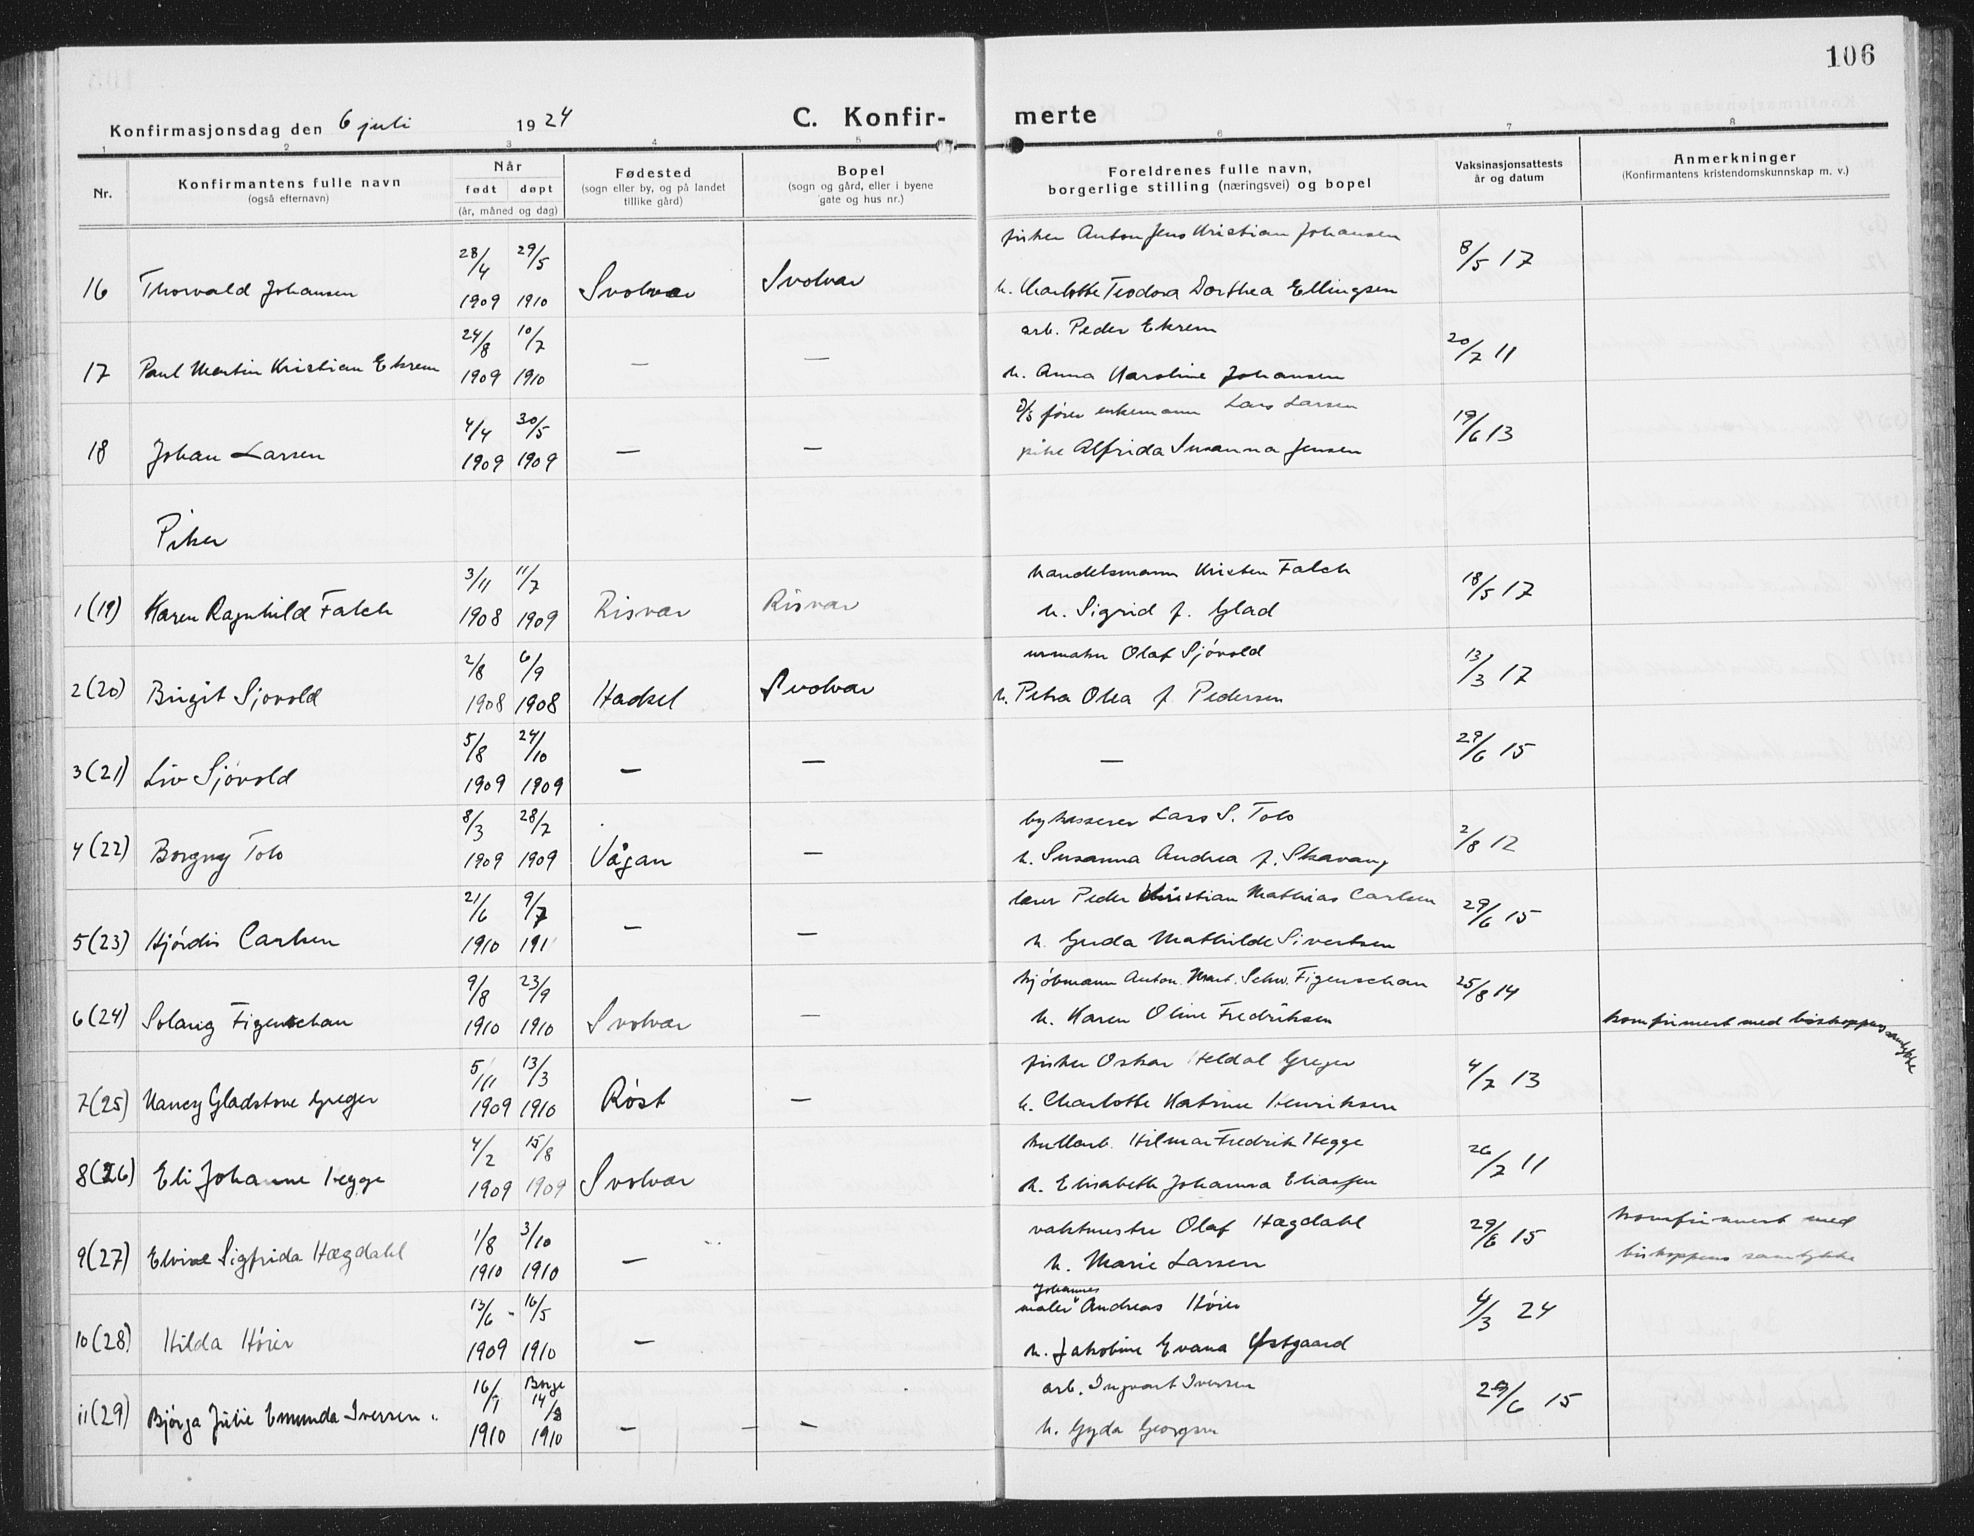 106
Konfirmasjonsdag den 6 juli 1924
C. Konfir- merte
1 2 3 4 5 6 7 8
Nr.
Konfirmantens fulle navn
(også efternavn)
Når
født døpt
(år, måned og dag)
Fødested
(sogn eller by, og på landet
tillike gård)
Bopel
(sogn og gård, eller i byene
gate og hus nr.)
Foreldrenes fulle navn,
borgerlige stilling (næringsvei) og bopel
Vaksinasjonsattests
år og datum
Anmerkninger
(Konfirmantens kristendomskunnskap m. v.)
28/4 29/5 fisker Anton Jens Kristian Johansen 8/5 17
16 Thorvald Johansen 1909 1910 Svolvær Svolvær h. Charlotte Teodora Dorthea Ellingsen
24/8 10/7 arb. Peder Ekrem 20/7 11
17 Paul Martin Kristian Ekrem 1909 1910 — — h. Anna Karoline Johansen
4/4 30/5 fører enkemann Lars Larsen 19/6 13
18 Johan Larsen 1909 1909 — — pike Alfrida Susanna Jensen
Piker
3/11 11/7 handelsmann Kristen Falch 18/5 17
1(19) Karen Ragnhild Falch 1908 1909 Risvær Risvær h. Sigrid f. Glad
2/8 6/9 urmaker Olaf Sjøvold 13/3 17
2(20) Birgit Sjøvold 1908 1908 Hadsel Svolvær h. Petra Olea f. Pedersen
5/8 24/10 29/6 15
3(21) Liv Sjøvold 1909 1909 — — —
8/3 28/7 bykasserer Lars S. Tolo 2/8 12
4(22) Borgny Tolo 1909 1909 Vågan — h. Susanna Andrea f. Skavang
21/6 9/7 lærer Peder Kristian Mathias Carlsen 29/6 15
5(23) Hjørdis Carlsen 1910 191 — — h. Gerda Mathilde Sivertsen
9/8 23/9 kjøbmann Anton Mart. Schw. Figenschau 25/8 14
6(24) Solveig Figenschau 1910 1910 Svolvær — h. Karen Oline Fredriksen konfirmert med biskoppens samtykke
5/11 13/3 fisker Oskar Heldal Greger 4/7 13
7(25) Nancy Gladstone Greger 1909 1910 Røst — h. Charlotte Katrine Henriksen
4/2 15/8 kullarb. Hilmar Fredrik Hegge 26/7 11
8(26) Eli Johanne Hegge 1909 1909 Svolvær h. Elisabeth Johanna Eliassen
1/8 3/10 vaktmestre Olaf Hægdahl 29/6 15 konfirmert med
9(27) Elvine Sigfrida Hægdahl 1910 1910 — h. Marie Larsen biskoppens samtykke
Johannes
13/6 - 16/5 maler Andreas Høier 4/3 24
10(28) Hilda Høier 1909 1910 — h. Jakobine Evana Østgaard
16/1 Borge 14/8 arb. Ingvart Iversen 29/6 15
11(29) Bjørga Julie Emunda Iversen 1910 1910 — — — h. Gyda Georgsen